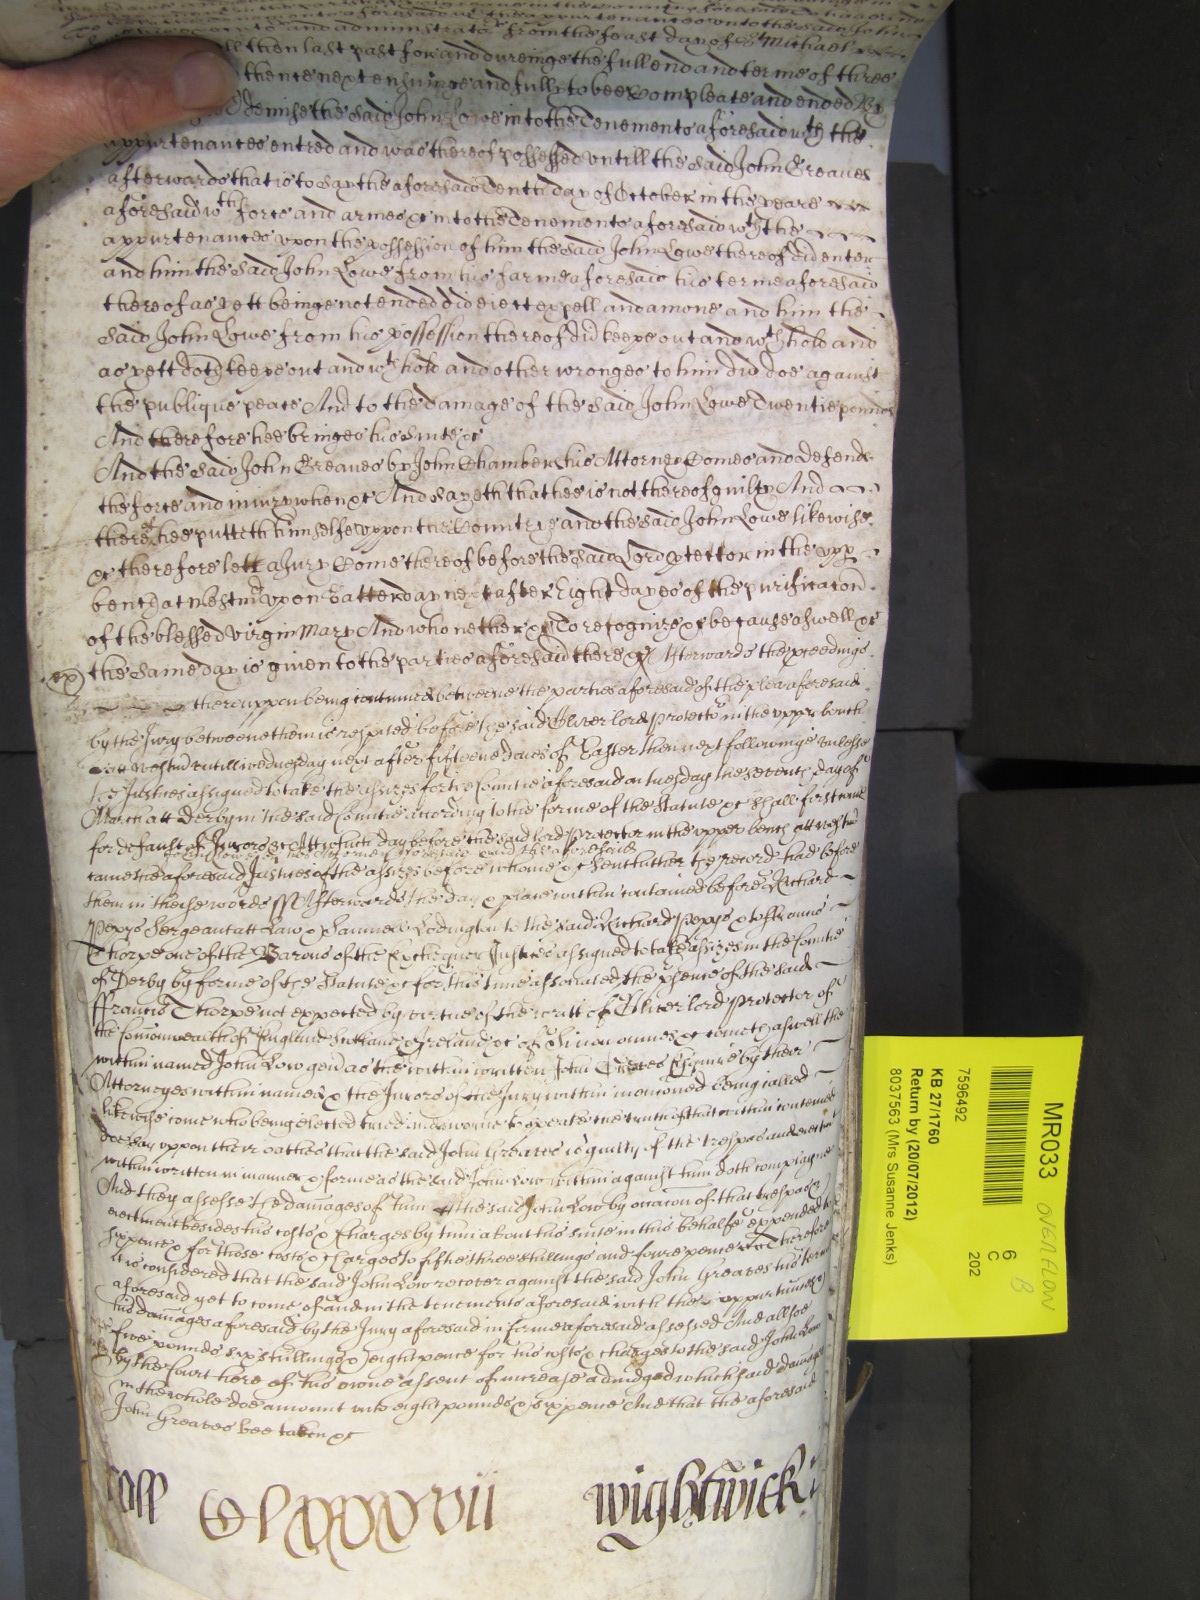 from the feast day of St Michael
then last past for and dureinge the full end and terme of three
thence next ensuinge and fully to bee Compleate and ended By
demise the said John Lowe into the Tenements aforesaid wth the
appurtenances entred and was thereof possessed untill the said John Greaves
afterwards that is to say the aforesaid Tenth day of October in the yeare
aforesaid wth force and armes &c into the Tenements aforesaid wth the
appurtenances upon the possession of him the said John Lowe thereof did enter
and him the said John Lowe from his farme aforesaid his terme aforesaid
thereof as yett beinge not ended did eiect expell and amove and him the
said John Lowe from his possession thereof did keepe out and wthhold and
as yett doth keepe out and wthhold and other wronges to him did doe against
the publique peace And to the damage of the said John Lowe Twentie pounds
And therefore hee bringes his suite &c
And the said John Greaves by John Chamber his Attorney Comes and defends
the force and iniury when &c And sayeth that hee is not thereof guilty And
thereof hee putteth himselfe uppon the Countrie and the said John Lowe likewise
&c therefore lett a Jury Come thereof before the said Lord Protector in the upp
bench at Westmr upon Satterday next after Eight dayes of the purificacon
of the blessed virgin Mary And who nether &c To recognize &c because aswell &c
the same day is given to the parties aforesaid there &c Afterwards the proceedings
thereuppon being continued betweene the parties aforesaid of the plea aforesaid
by the Jury betweene them is respited before the said Oliver lord Protector in the upper bench
att Westmr untill wednesday next after fifteene daies of Easter then next followinge unlesse
the Justices assigned to take the assizes for the Countie aforesaid on tuesday the seventh day of
March att Derby in the said Countie according to the forme of the Statute &c shall first come
for default of Jurors &c Att which day before the said lord Protector in the upper bench att Westmr
came the aforesaid Justices of the assizes before whome &c sent hither the record had before
them in theise words ss Afterwards the day & place within contained before Richard
Pepys Sergeant att Law & Samuell Lodington to the said Richard Pepys & to ffrancis
Thorpe one of the Barons of the Exchequer Justices assigned to take assizes in the Countie
of Derby by forme of the Statute &c for this time associated the presence of the said
ffrancis Thorpe not expected by virtue of the writt of Oliver lord Protector of
the Commonwealth of England Scotland & Ireland &c of Si non omnes &c cometh aswell the
within named John Low gen as the within written John Greaves Esquire by their
Attorneyes within named & the Jurors of the Jury within mencioned being called
likewise come who being elected tried and sworne to speake the truth of that within contened
doe say uppon their oathes that the said John Greaves is guilty of the trespas and eiectmt
within written in manner & forme as the said John Low within against him doth complayne
And they assesse the damages of him the said John Low by occacon of that trespas &
eiectment besides his costs & Charges by him about his suite in this behalfe expended to
sixpence & for those costs & Charges to fiftie three shillings and foure pence therefore
it is considered that the said John Low recover against the said John Greaves his terme
aforesaid yet to come of and in the tenements aforesaid with the appurtnances &
his damages aforesaid by the Jury aforesaid in forme aforesaid assessed And allsoe
five pounds six shillings & eight pence for his costs & charges to the said John Low
by the Court here of his owne assent of increase adiudged which said damages
in the whole doe amount unto eight pounds & sixpence And that the aforesaid
John Greaves bee taken &c
wightwick
MR033
OVERFLOW
6
C
202
B
7596492
KB 27/1760
Return by (20/07/2012)
8037563 (Mrs Susanne Jenks)